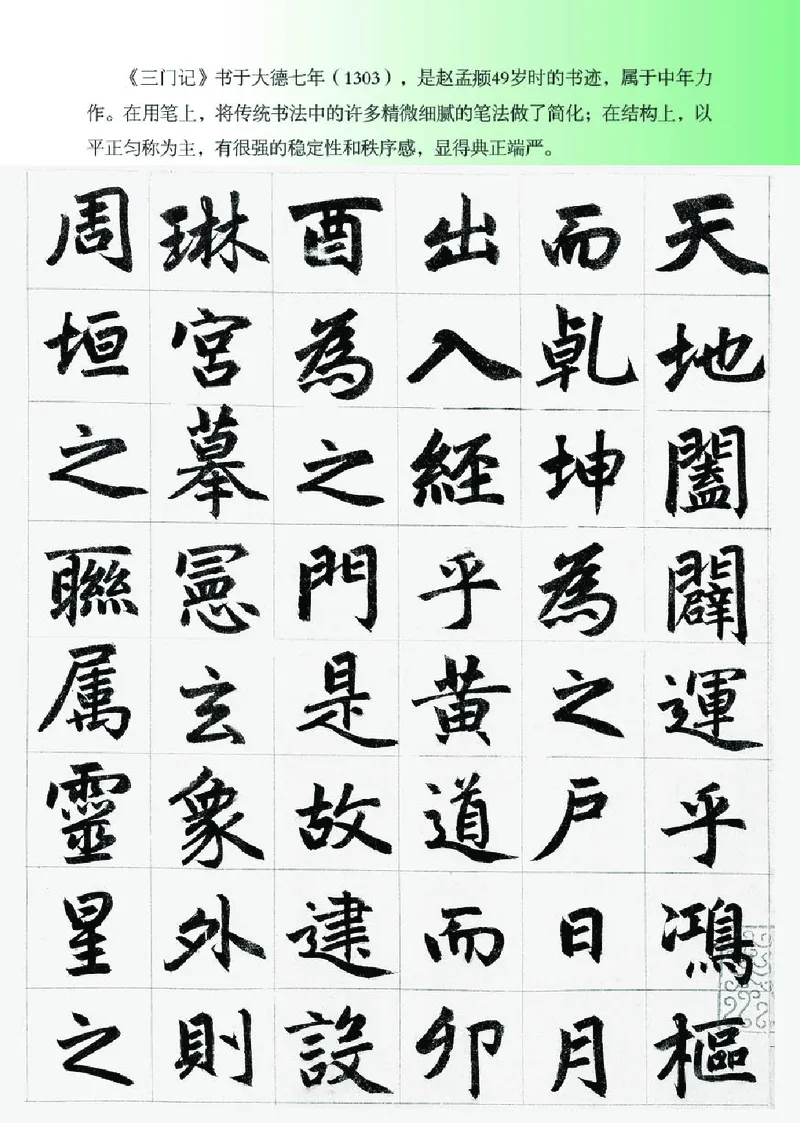 《三门记》书于大德七年（1303），是赵孟頫49岁时的书迹，属于中年力
作。在用笔上，将传统书法中的许多精微细腻的笔法做了简化；在结构上，以
平正匀称为主，有很强的稳定性和秩序感，显得典正端严。
天地闔闢運乎鴻樞
而乹坤為之户日月
出入經乎黄道而卯
酉為之門是故建設
琳宮摹憲玄象外則
周垣之聯属靈星之